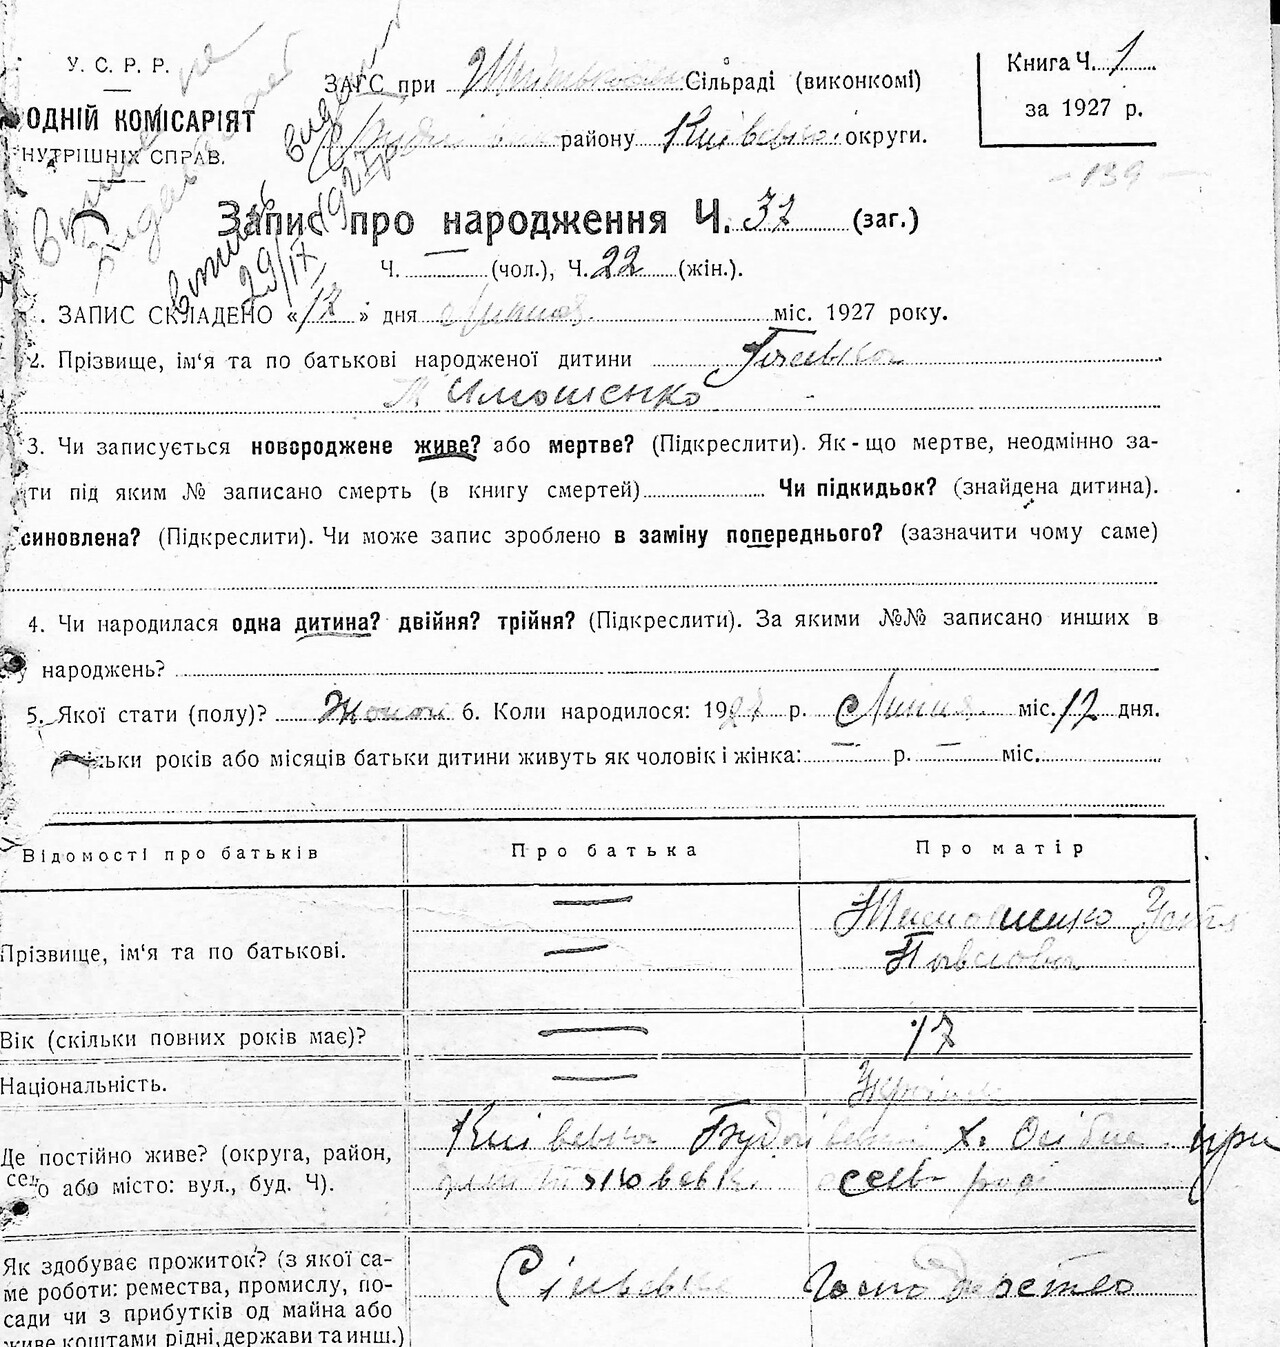 У. С. Р. Р.
ОДНІЙ КОМІСАРІЯТ
НУТРІШНІХ СПРАВ.
ЗАГС при Сільраді (виконкомі)
району Київської округи.
Книга Ч. 1
за 1927 р.
139
Запис про народження Ч. 37 (заг.)
Ч. — (чол.), Ч. 22 (жін.).
. ЗАПИС СКЛАДЕНО «12» дня міс. 1927 року.
2. Прізвище, ім‘я та по батькові народженої дитини
Тимошенко
3. Чи записується новороджене живе? або мертве? (Підкреслити). Як-що мертве, неодмінно за-
ти під яким № записано смерть (в книгу смертей) Чи підкидьок? (знайдена дитина).
синовлена? (Підкреслити). Чи може запис зроблено в заміну попереднього? (зазначити чому саме)
4. Чи народилася одна дитина? двійня? трійня? (Підкреслити). За якими №№ записано инших в
у народжень?
5. Якої стати (полу)? 6. Коли народилося: 1927 р. Липня міс. 12 дня.
ьки років або місяців батьки дитини живуть як чоловік і жінка: — р. — міс.
Відомості про батьків Про батька Про матір
Прізвище, ім‘я та по батькові. — — Тимошенко
Павлова
Вік (скільки повних років має)? — 17
Національність. —
Де постійно живе? (округа, район,
село або місто: вул., буд. Ч).
Київська х. при
сель раді
Як здобуває прожиток? (з якої са-
ме роботи: ремества, промислу, по-
сади чи з прибутків од майна або
живе коштами рідні, держави та инш.)
Сільське Господарство